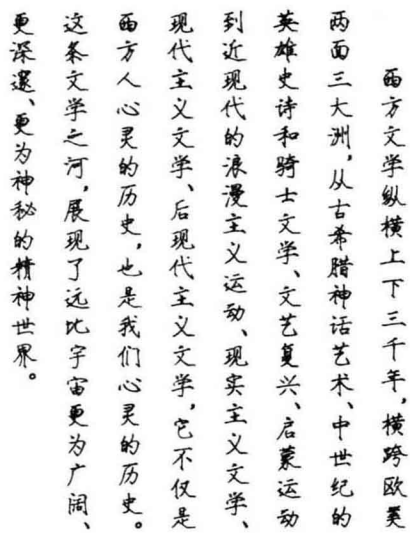 西方文学纵横上下三千年,横跨欧美
两面三大洲,从古希腊神话艺术、中世纪的
英雄史诗和骑士文学、文艺复兴、启蒙运动
到近现代的浪漫主义运动、现实主义文学、
现代主义文学、后现代主义文学,它不仅是
西方人心灵的历史,也是我们心灵的历史。
这条文学之河,展现了远比宇宙更为广阔、
更深邃、更为神秘的精神世界。